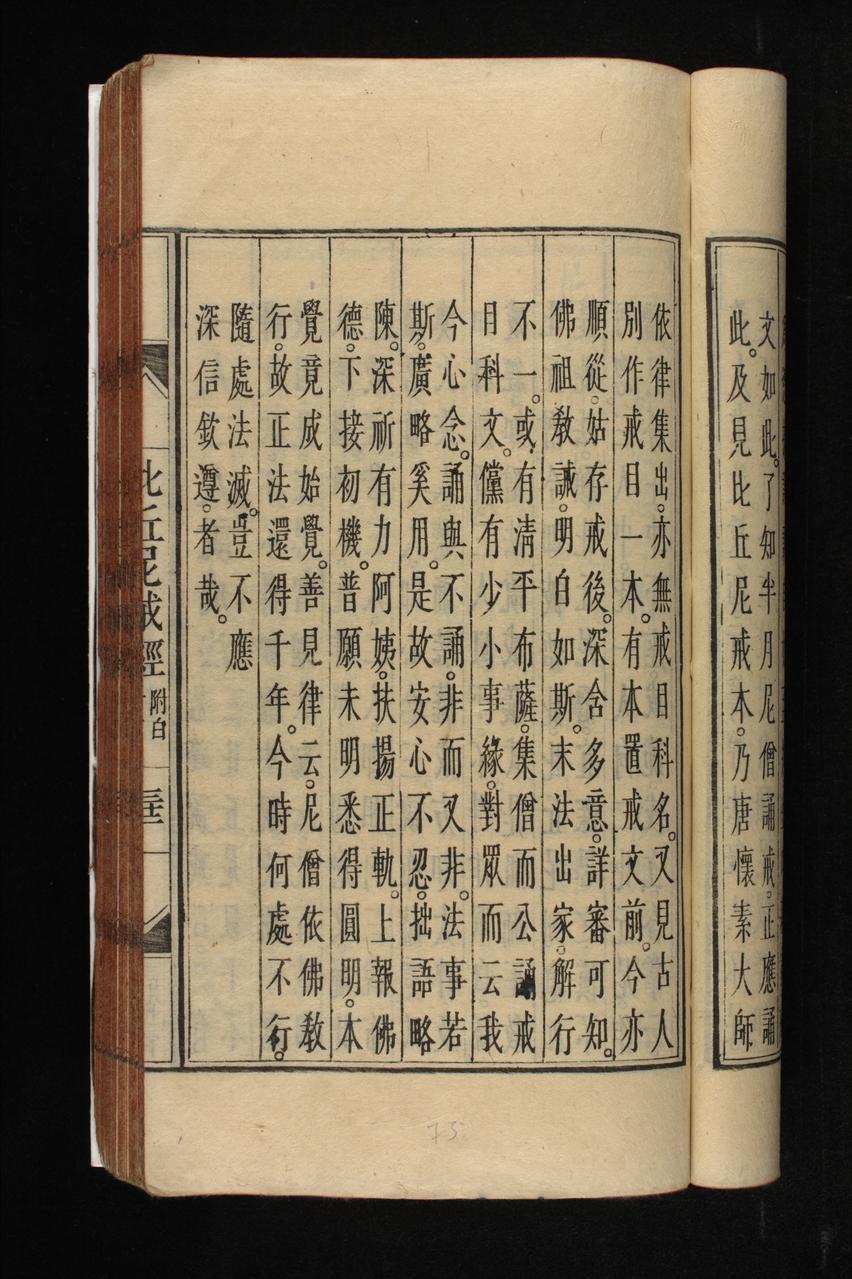 文如此。了知半月尼僧誦戒。正應誦
此。及見比丘尼戒本。乃唐懷素大師
依律集出。亦無戒目科名。又見古人
別作戒目一本。有本置戒文前。今亦
順從。姑存戒後。深含多意。詳審可知。
佛祖敎誡。明白如斯。末法出家。解行
不一。或有清平布薩。集僧而公誦戒
目科文。儻有少小事緣。對眾而云我
今心念。誦與不誦。非而又非。法事若
斯。廣略奚用。是故安心不忍。拙語略
陳。深祈有力阿姨。扶揚正軌。上報佛
德。下接初機。普願未明悉得圓明。本
覺竟成始覺。善見律云。尼僧依佛敎
行。故正法還得千年。今時何處不行。
隨處法滅。豈不應
深信欽遵。者哉。
比丘尼戒經 附白
73